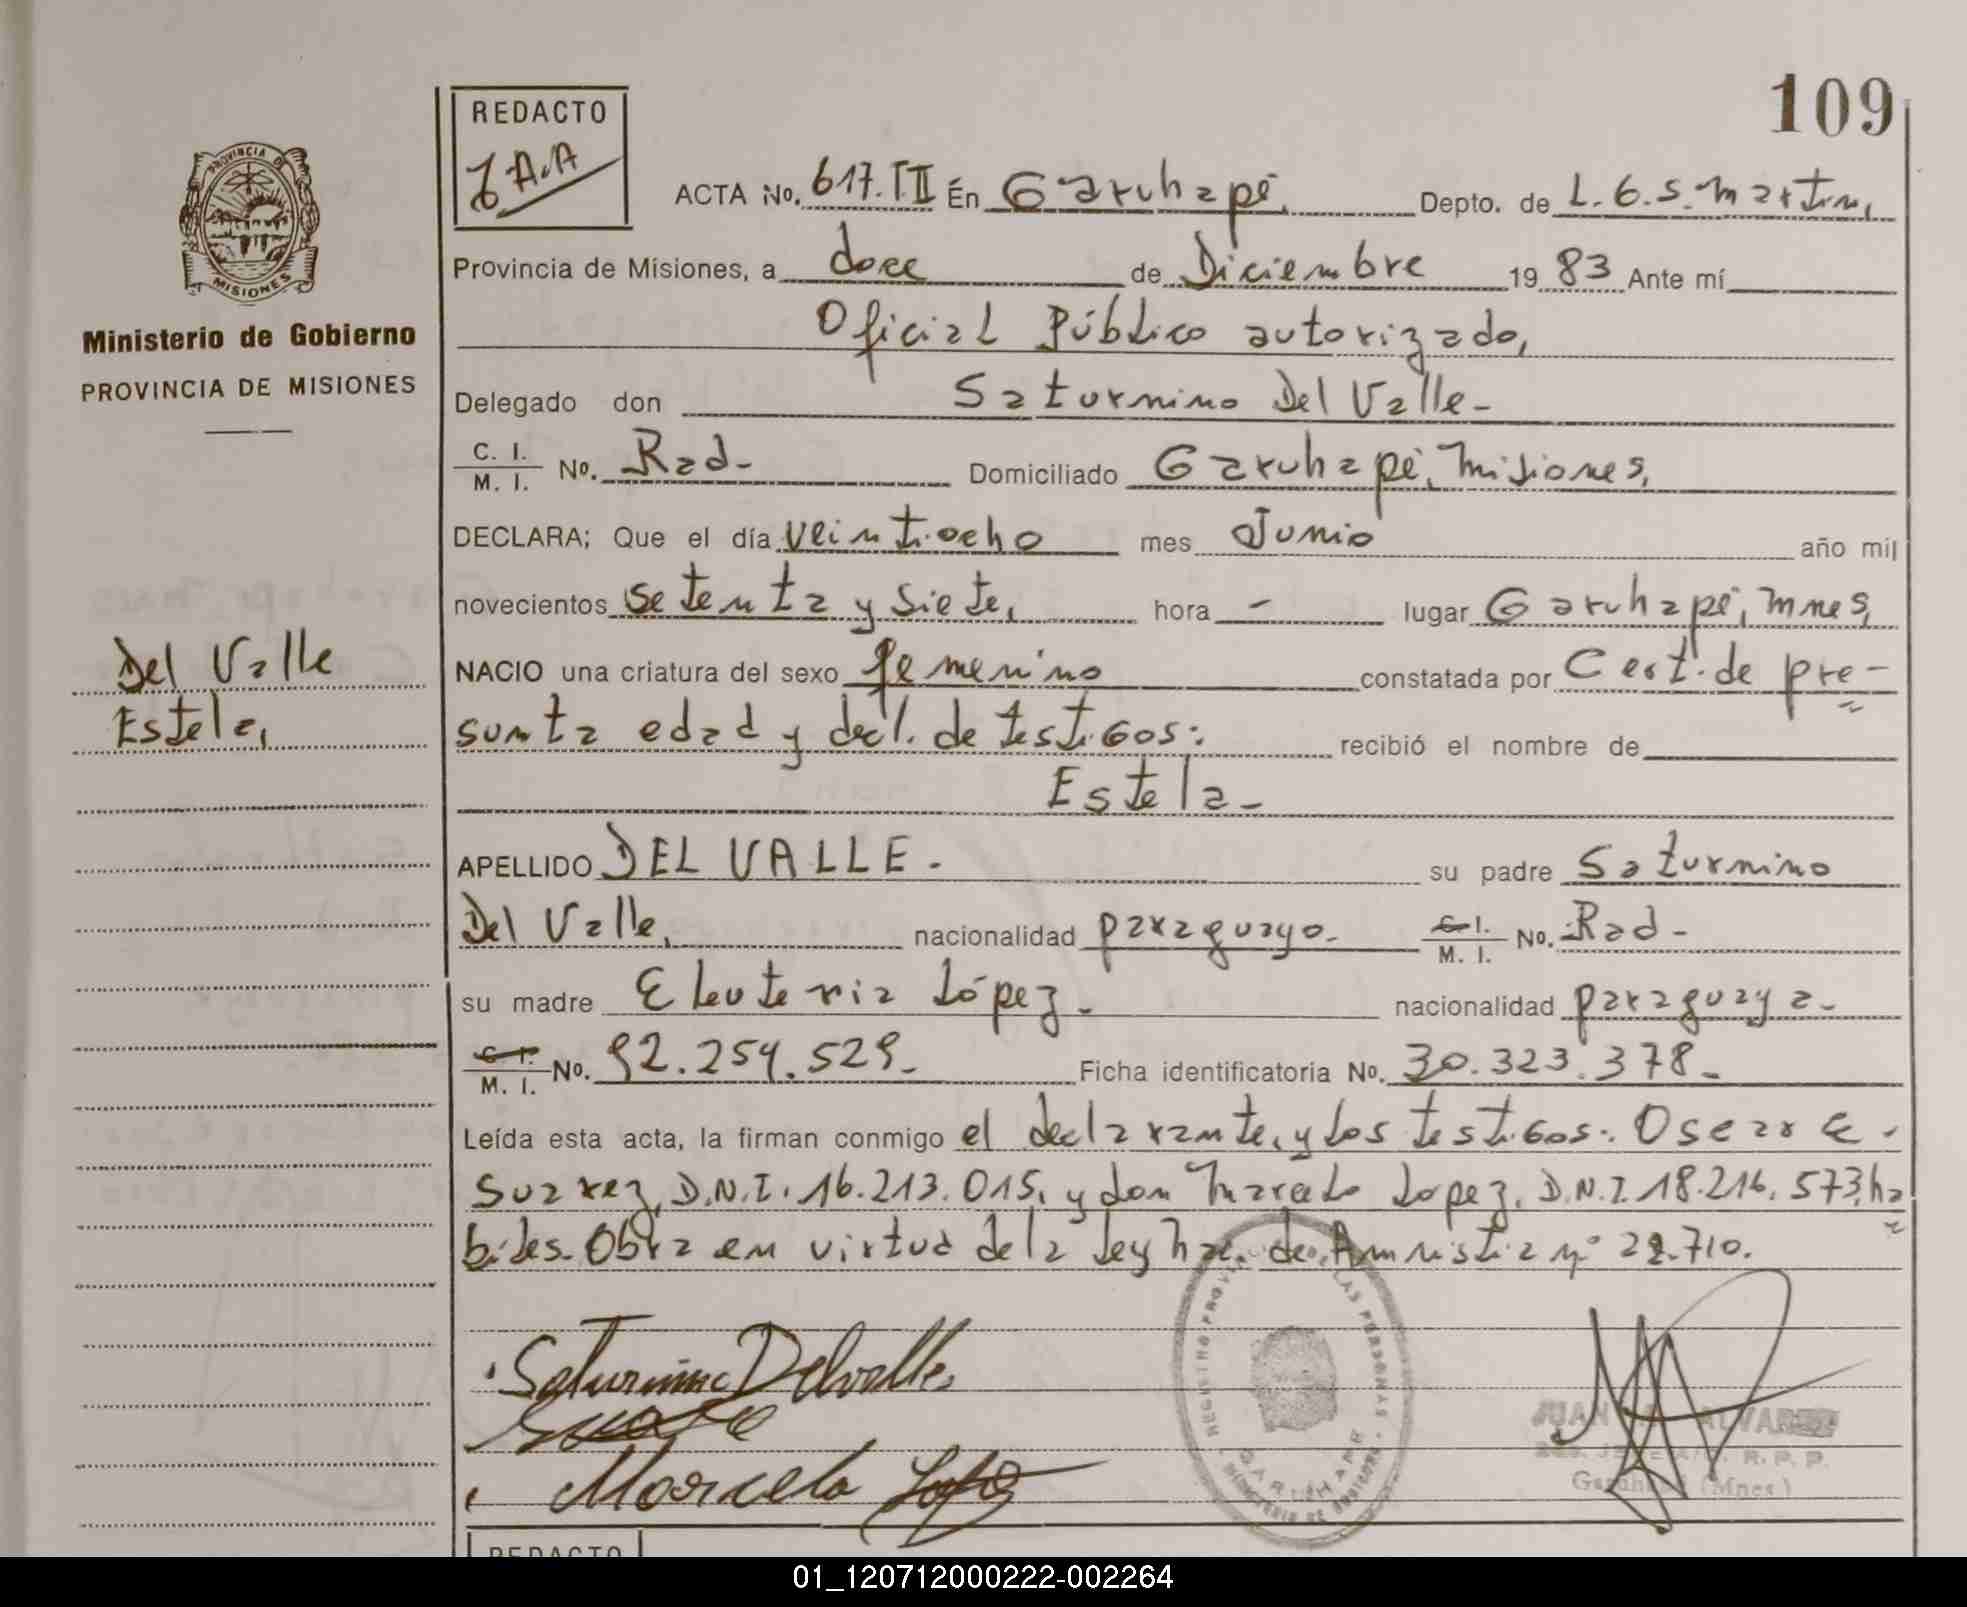 109
REDACTO
ACTA No. 617.TII En Garuhapé, Depto. de L.G.S. Martin,
Provincia de Misiones, a doce de Diciembre 1983 Ante mí
Oficial Público autorizado,
Delegado don Saturnino Del Valle-
C. I.
M. I. No. Rad- Domiciliado Garuhapé, Misiones,
DECLARA; Que el día veintiocho mes Junio año mil
novecientos setenta y siete, hora - lugar Garuhapé, Mnes,
NACIO una criatura del sexo femenino constatada por Cert. de pre-
sunta edad y decl. de testigos: recibió el nombre de
Estela-
APELLIDO DEL VALLE- su padre Saturnino
Del Valle, nacionalidad paraguayo- C. I.
M. I. No. Rad-
su madre Eleuteria López- nacionalidad paraguaya-
C. I.
M. I. No. 92.254.529- Ficha identificatoria No. 30.323.378-
Leída esta acta, la firman conmigo el declarante, y los testigos: Oscar E.
Suarez, D.N.I. 16.213.015, y don Marcelo Lopez, D.N.I. 18.216.573, ha
biles. Obra en virtud de la Ley Nac. de Amnistia nº 22.710.
PROVINCIA DE
MISIONES
Ministerio de Gobierno
PROVINCIA DE MISIONES
Del Valle
Estela,
Saturnino Delvalle
Marcelo Lopez
REGISTRO PROVINCIAL DE LAS PERSONAS
GARUHAPE
MINISTERIO DE GOBIERNO
JUAN ALVAREZ
R. P. P.
Garuhapé (Mnes)
REDACTO
01_120712000222-002264